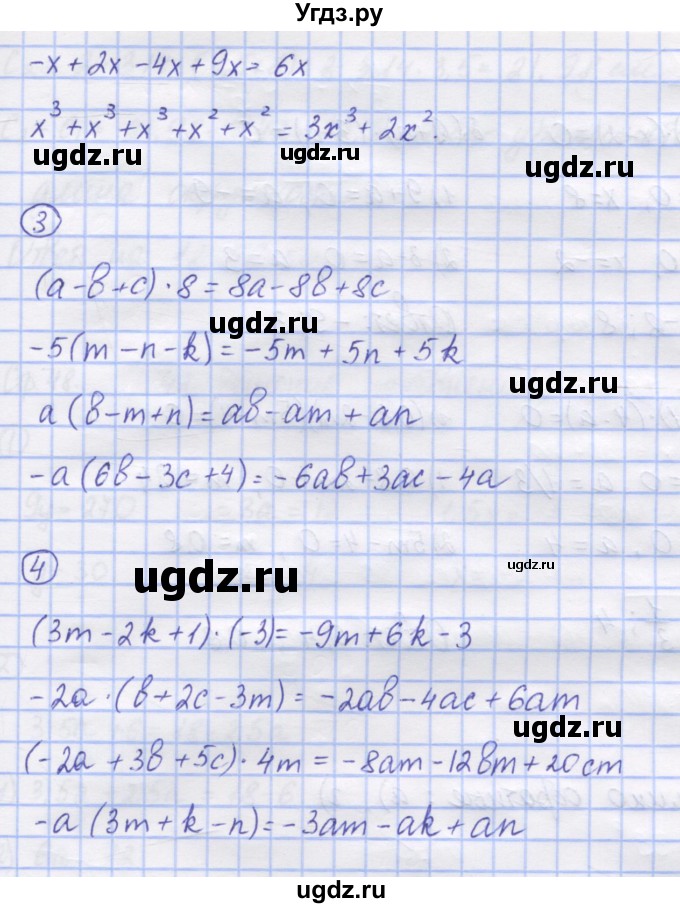 Угдз.ру
-x + 2x - 4x + 9x = 6x
x³ + x³ + x³ + x² + x² = 3x³ + 2x².
ugdz.ru ugdz.ru ugdz.ru
3
(a - b + c) · 8 = 8a - 8b + 8c
ugdz.ru
-5(m - n - k) = -5m + 5n + 5k
ugdz.ru
a(b - m + n) = ab - am + an
-a(6b - 3c + 4) = -6ab + 3ac - 4a
4
ugdz.ru ugdz.ru
(3m - 2k + 1) · (-3) = -9m + 6k - 3
-2a · (b + 2c - 3m) = -2ab - 4ac + 6am
ugdz.ru
(-2a + 3b + 5c) · 4m = -8am - 12bm + 20cm
-a(3m + k - n) = -3am - ak + an
ugdz.ru
ugdz.ru